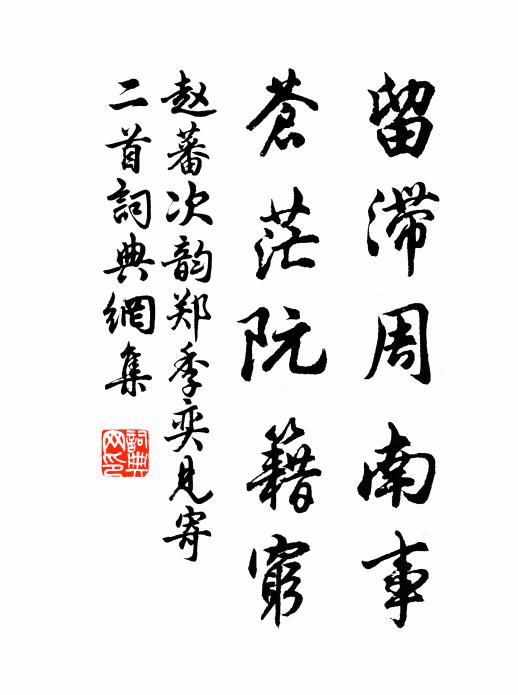 留滞周南事
蒼茫阮籍窮
赵蕃次韵郑季奕見寄
二首詞典網集
詞典
网印